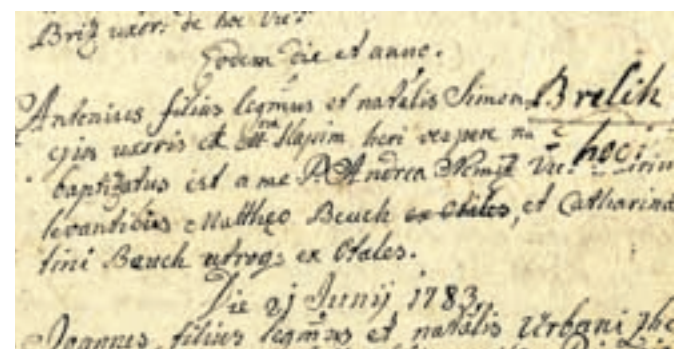 Briz uxoris de hoc Vic:
Eodem die et anno.
Antonius filius legmus et natalis Simon Brelih
ejus uxoris et Mariæ Slapim heri vespere na
baptizatus est a me P. Andrea Nemiz Vic: hoc:
levantibus Mattheo Beuch ex Otales, et Catharina
tini Bauch utroq; ex Otales.
Die 21 Junij 1783.
Joannes filius legmus et natalis Urbani